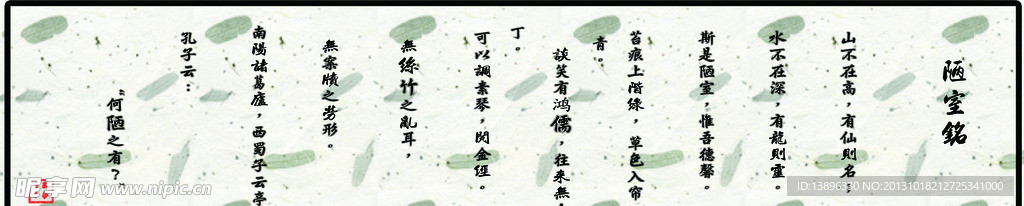 陋室銘
山不在高，有仙則名，
水不在深，有龍則靈。
斯是陋室，惟吾德馨。
苔痕上階綠，草色入帘
青。
談笑有鸿儒，往來無
丁。
可以調素琴，閱金經。
無絲竹之亂耳，
無案牘之勞形。
南陽諸葛廬，西蜀子云亭
孔子云：
“何陋之有？”
昵享网 www.nipic.cn
ID:13896330 NO:20131018212725341000